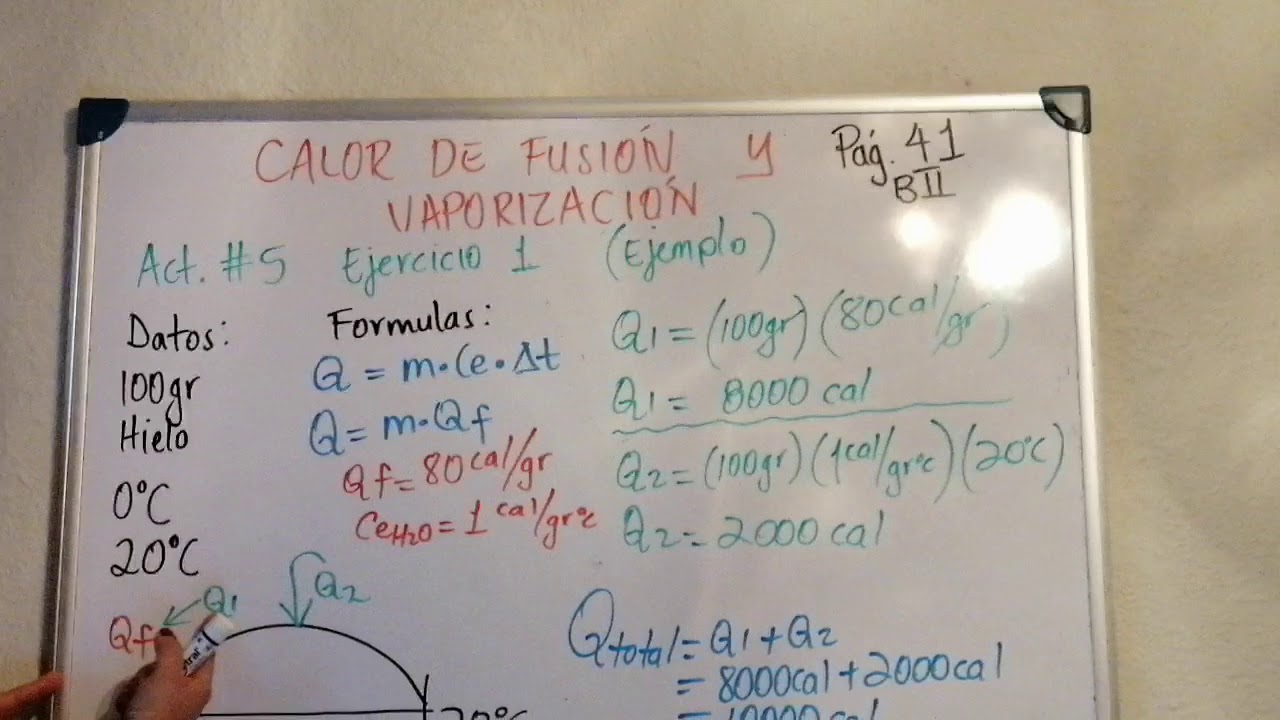 CALOR DE FUSIÓN Y
VAPORIZACIÓN
Pág. 41
BII
Act. #5 Ejercicio 1 (Ejemplo)
Datos:
100gr
Hielo
0°C
20°C
Formulas:
Q = m·Ce·Δt
Q = m·Qf
Qf = 80 cal/gr
CeH2O = 1 cal/gr°c
Q1 = (100gr) (80cal/gr)
Q1 = 8000 cal
Q2 = (100gr) (1cal/gr°c) (20°C)
Q2 = 2000 cal
Q1
Q2
Qf
20°C
Qtotal = Q1 + Q2
= 8000cal + 2000cal
= 10000 cal